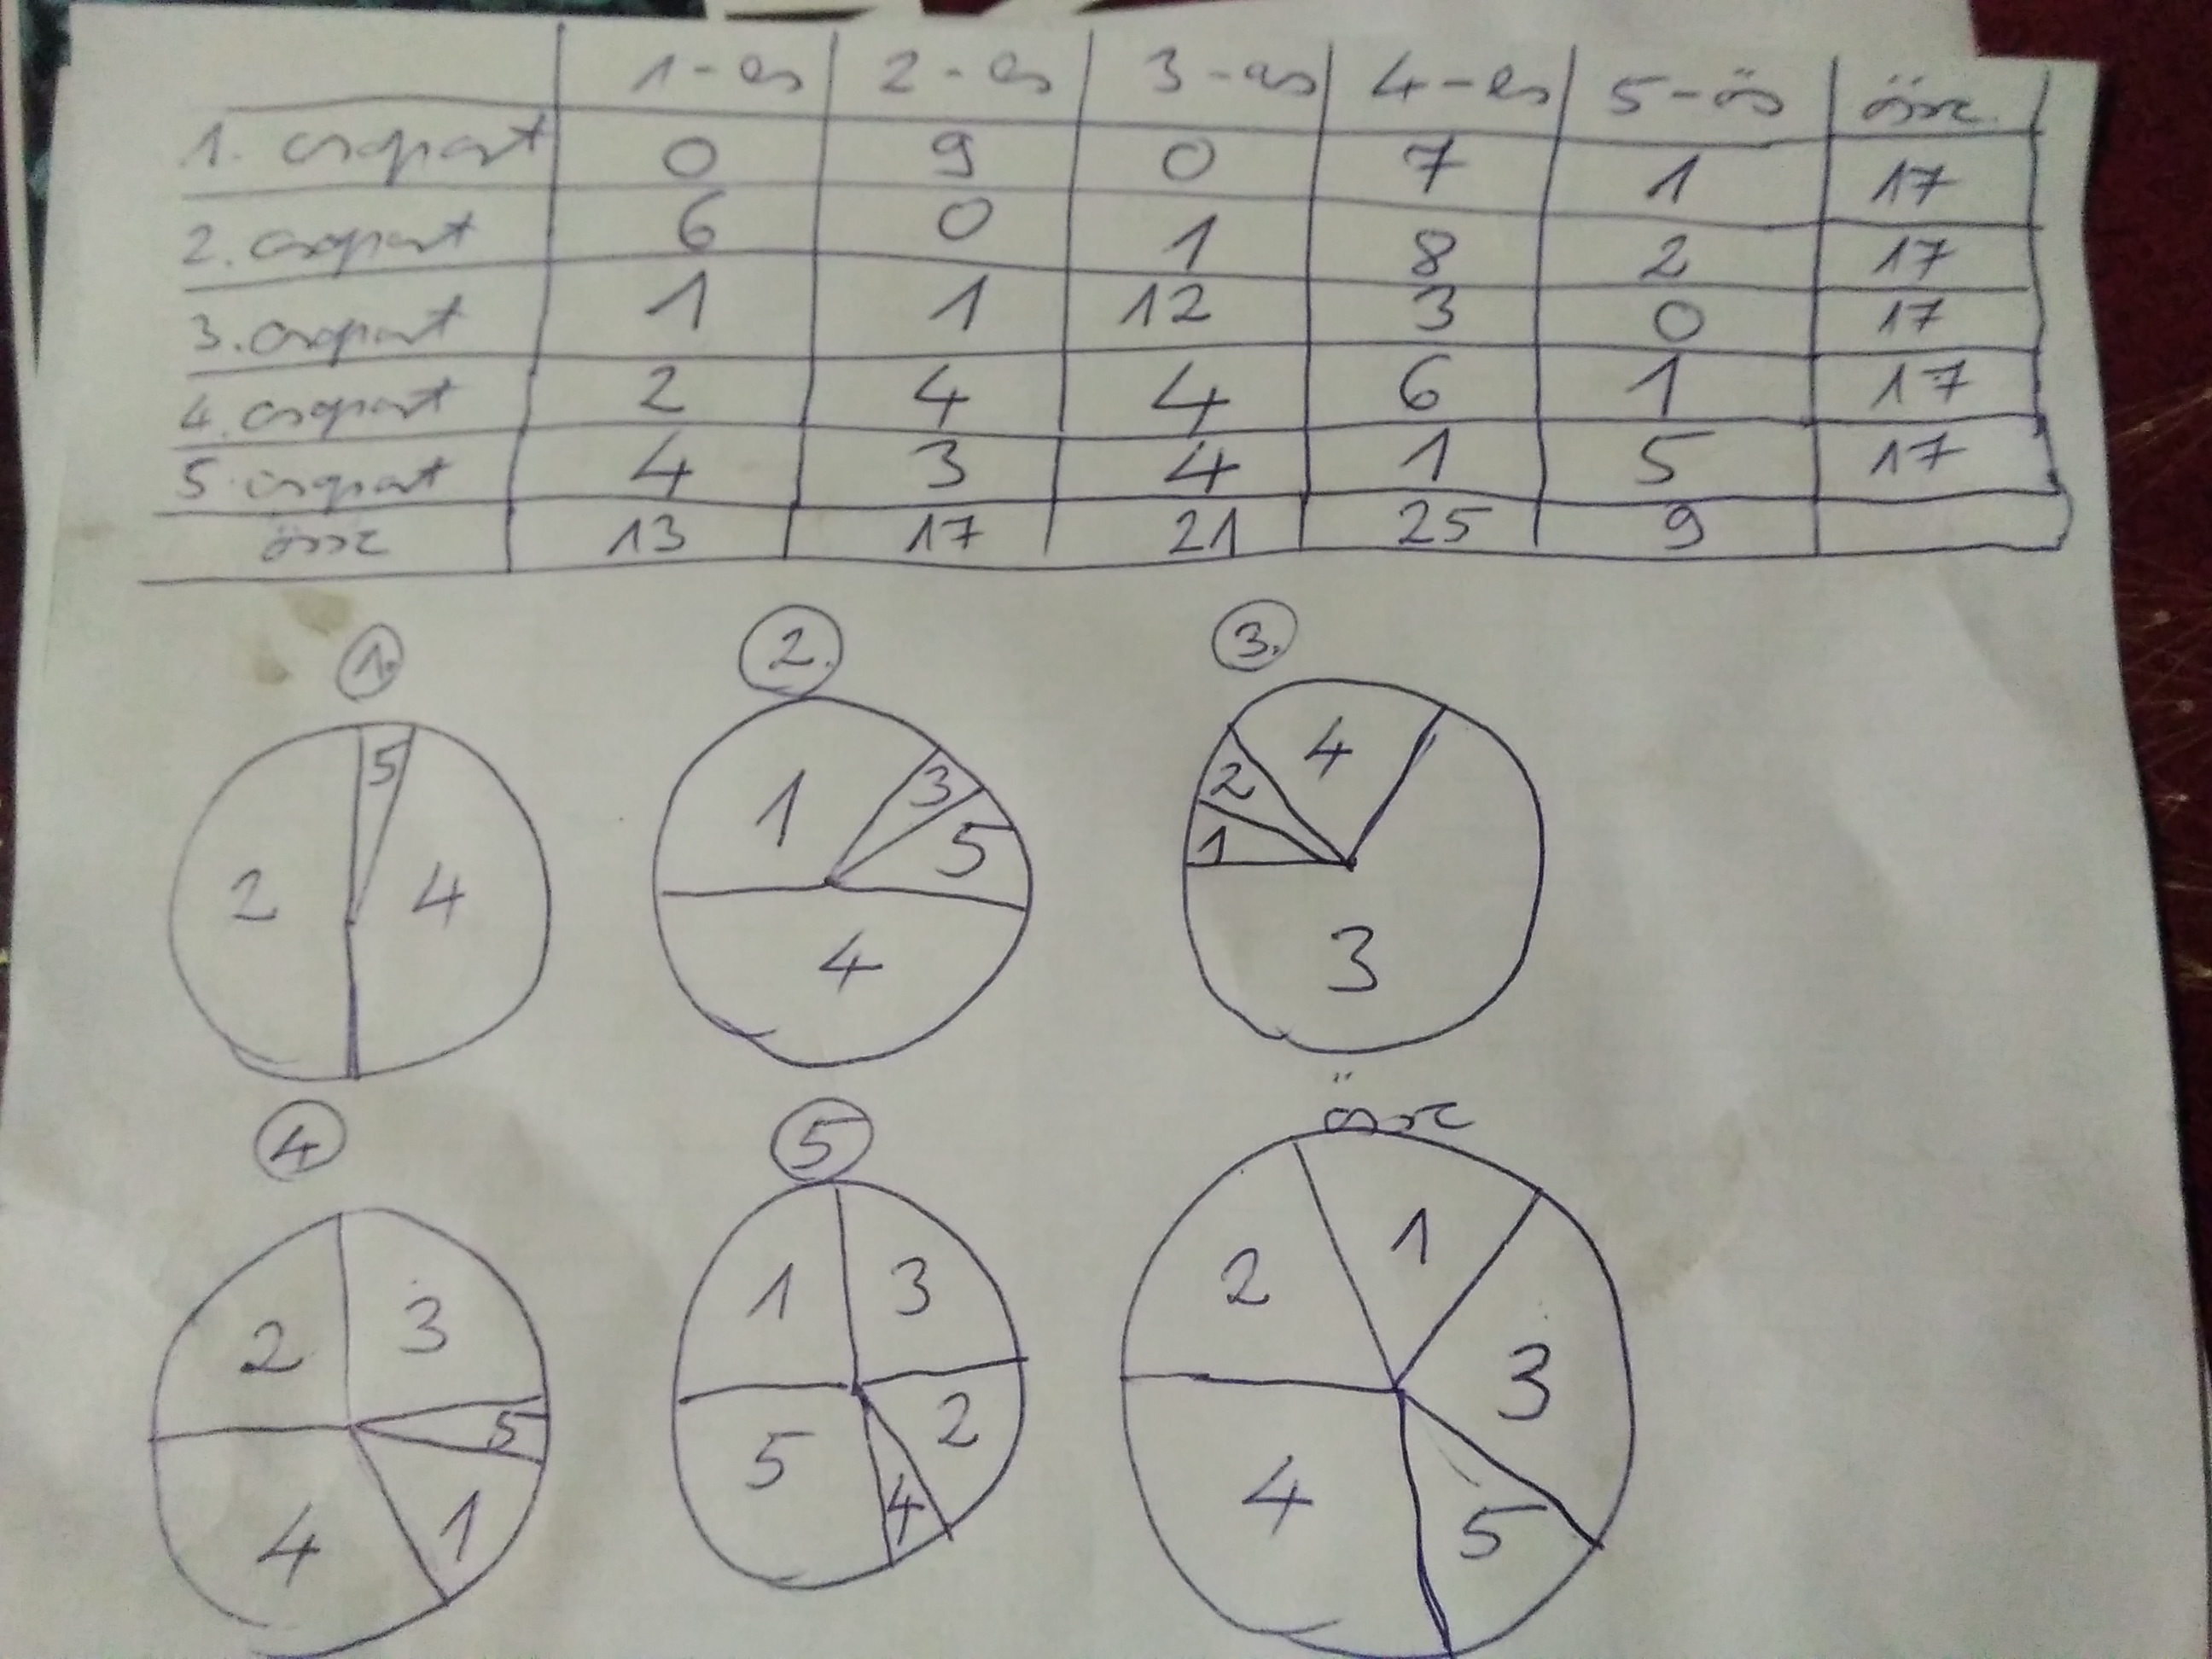 1-es 2-es 3-as 4-es 5-ös össz.
1. csoport 0 9 0 7 1 17
2. csoport 6 0 1 8 2 17
3. csoport 1 1 12 3 0 17
4. csoport 2 4 4 6 1 17
5. csoport 4 3 4 1 5 17
össz 13 17 21 25 9
1. 2. 3.
5
2 4
1 3 5
4
4
2
1
3
4 5 össz
2 3
5
4 1
1 3
2
5 4
1
2
3
4 5